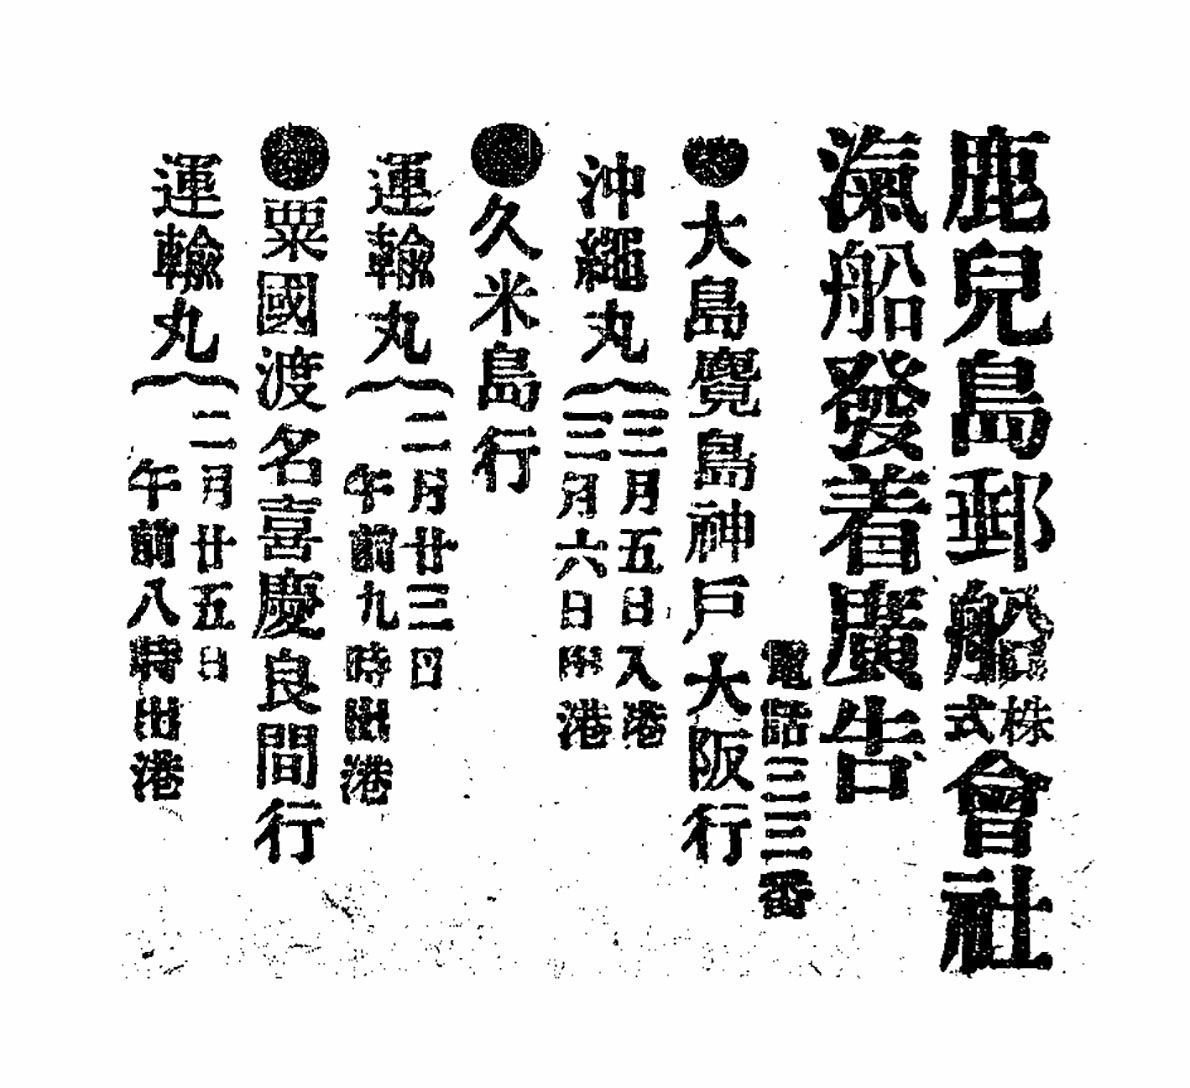 鹿兒島郵船株式會社
滊船發着廣告
電話三三番
●大島麑島神戶大阪行
沖繩丸
三月五日入港
三月六日出港
●久米島行
運輸丸
二月廿三日
午前九時出港
●粟國渡名喜慶良間行
運輸丸
二月廿五日
午前八時出港